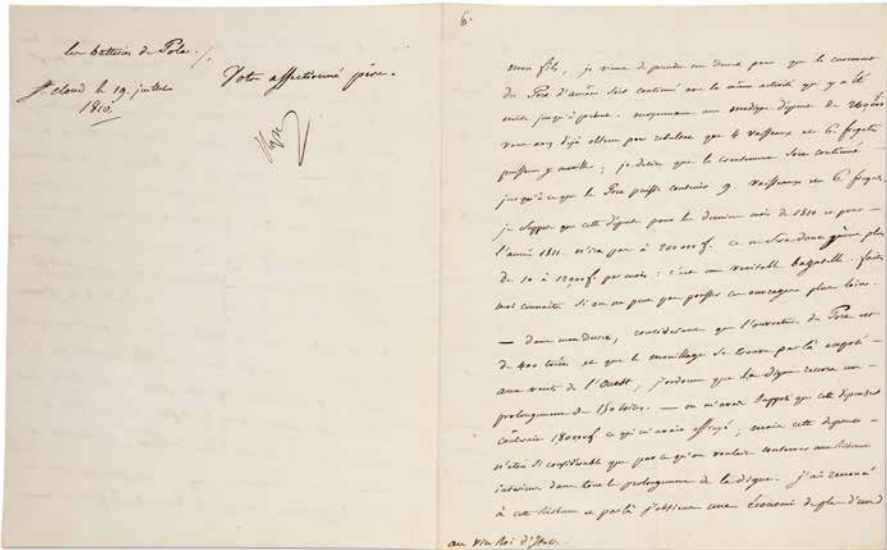 les batteries de Pola ./.
Votre affectionné père.
St cloud le 19. juillet
1810.
Nap
6.
mon fils, je viens de prendre un decret pour que le curement
du Port d'ancône soit continué avec la même activité qui y a été
mise jusqu'à présent. moyennant une modique dépense de
vous avez déjà obtenu pour résultat que 4 vaisseaux et 6. fregates
puissent y mouiller ; je desire que le curement soit continué
jusqu'à ce que le Port puisse contenir 9. vaisseaux et 6. fregates.
je suppose que cette dépense pour les derniers mois de 1810 et pour
l'année 1811. n'ira pas à 200 000 f. ce ne sera donc guère plus
de 10 à 12,000 f. par mois : c'est une veritable bagatelle. faites
moi connaître si on ne peut pas pousser ces ouvrages plus loin.
— dans mon decret, considérant que l'ouverture du Port est
de 400 toises et que le mouillage se trouve par là exposé
aux vents de l'Ouest, j'ordonne que la digue recevra un
prolongement de 150 toises. — on m'avait supposé que cette dépense
coûterait 1800000 f ce qui m'avait effrayé ; mais cette depense
n'était si considérable que parce qu'on voulait conserver une
intérieure dans tout le prolongement de la digue. j'ai renoncé
à cette et par là j'obtiens une économie de plus d'un
au vice Roi d'Italie.